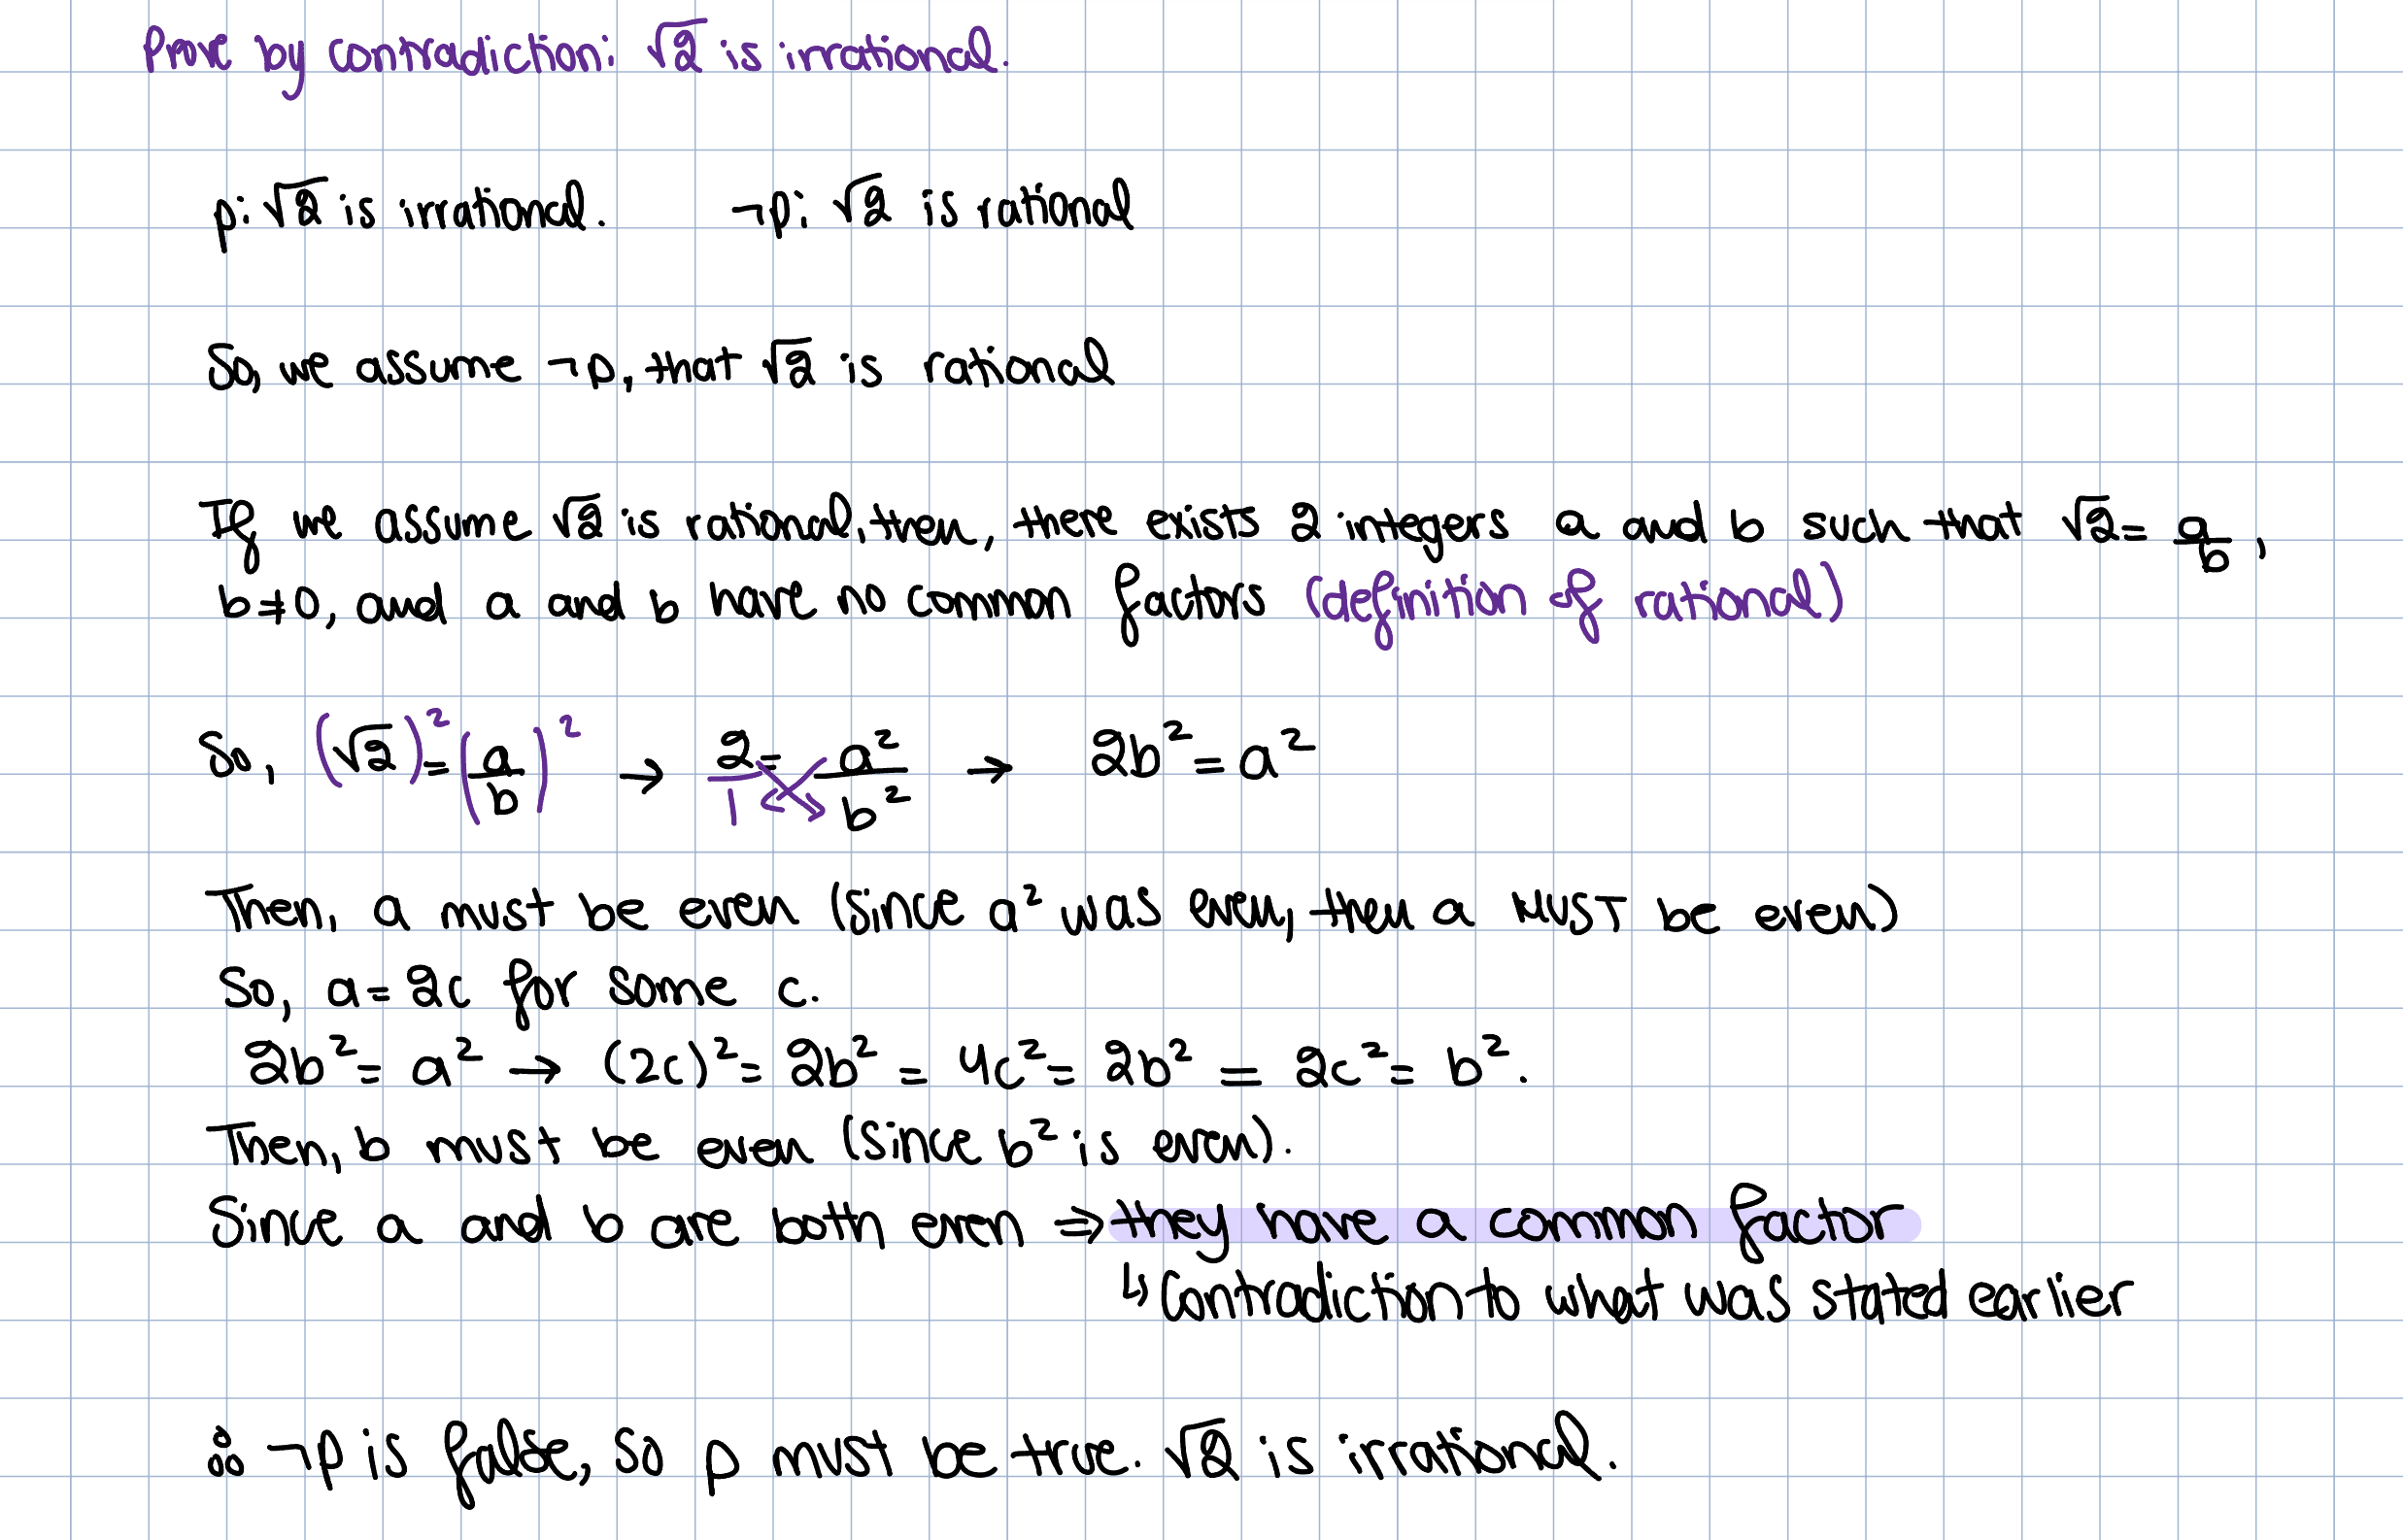 Prove by contradiction: √2 is irrational.
p: √2 is irrational. ¬p: √2 is rational
So, we assume ¬p, that √2 is rational
If we assume √2 is rational, then, there exists 2 integers a and b such that √2 = a/b,
b≠0, and a and b have no common factors (definition of rational)
So, (√2)² = (a/b)² → 2/1 = a²/b² → 2b² = a²
Then, a must be even (since a² was even, then a MUST be even)
So, a = 2c for some c.
2b² = a² → (2c)² = 2b² = 4c² = 2b² = 2c² = b².
Then, b must be even (since b² is even).
Since a and b are both even ⇒ they have a common factor
↳ Contradiction to what was stated earlier
∴ ¬p is false, so p must be true. √2 is irrational.